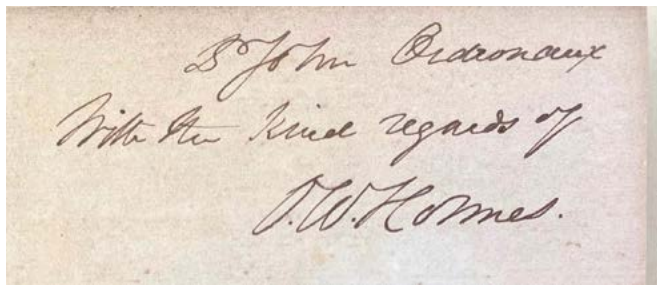 Dr John Ordronaux
With the kind regards of
O.W. Holmes.